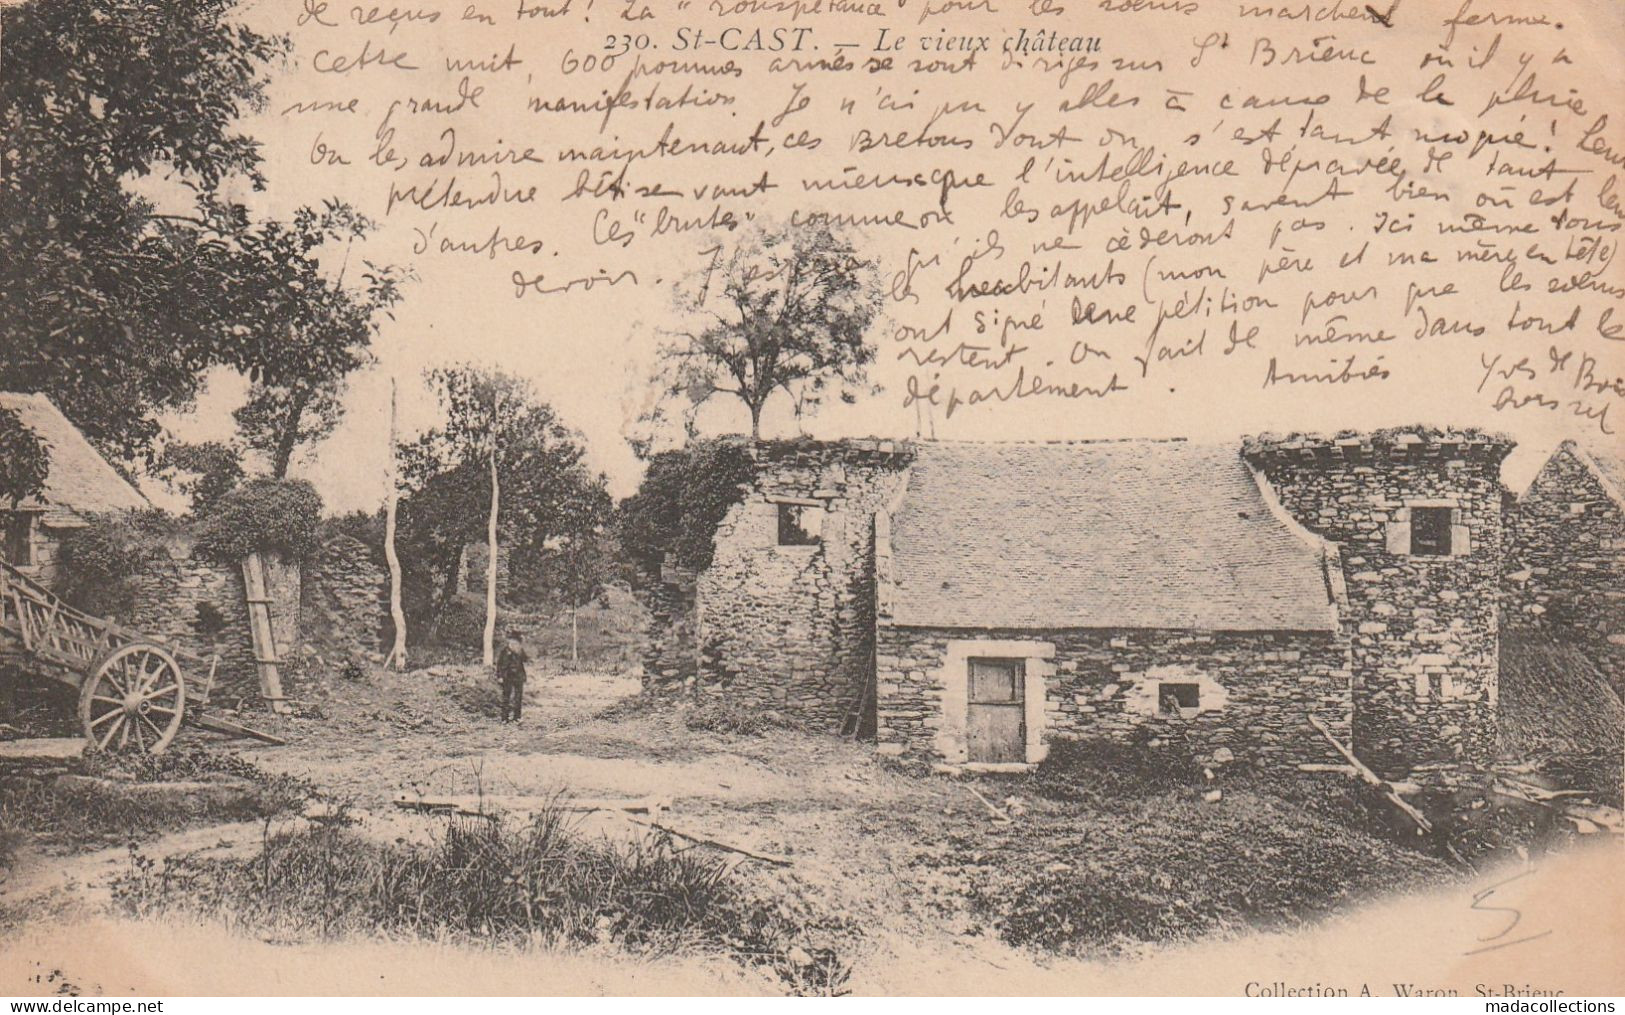 de reçus en tout ! La "rouspétance" pour les sœurs marchent ferme.
230. St-CAST. — Le vieux château
Cette nuit, 600 hommes armés se sont dirigés sur St Brieuc où il y a
une grande manifestation. Je n'ai pu y aller à cause de la pluie.
On les admire maintenant, ces Bretons dont on s'est tant moqué ! Leur
prétendue bêtise vaut mieux que l'intelligence dépravée de tant
d'autres. Ces "brutes" comme on les appelait, savent bien où est leur
devoir. J'espère qu'ils ne cèderont pas. Ici même tous
les habitants (mon père et ma mère en tête)
ont signé une pétition pour que les sœurs
restent. On fait de même dans tout le
département. Amitiés Yves de
Collection A. Waron, St-Brieuc
madacollections
www.delcampe.net